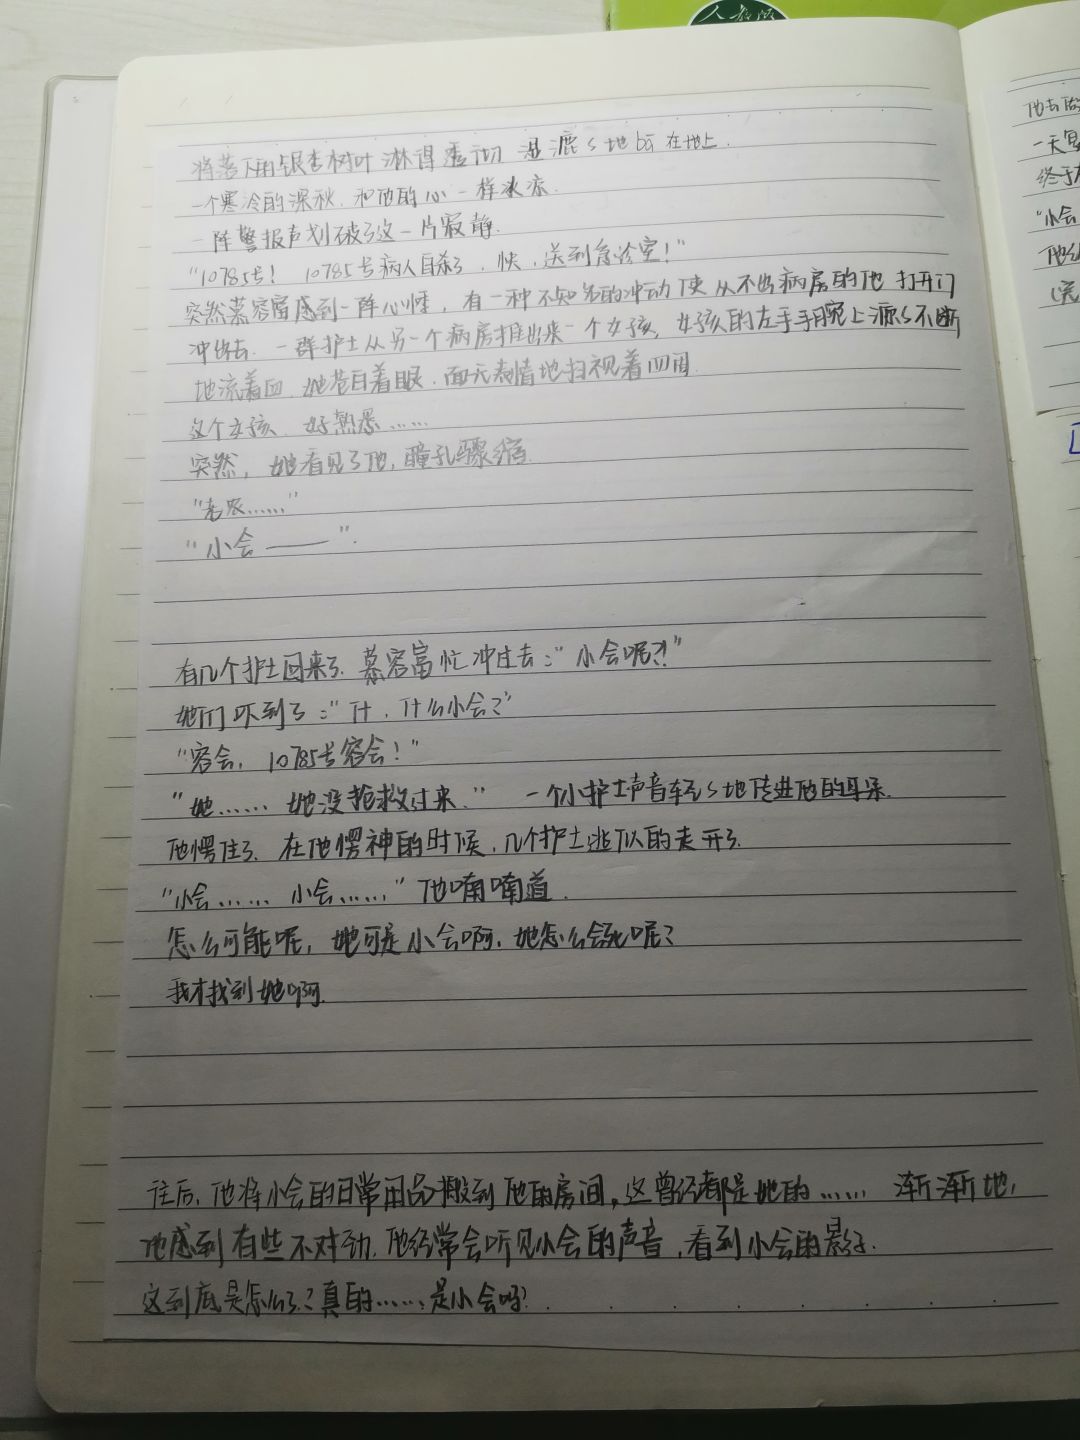 人教版
将落下的银杏树叶淋得透彻 湿漉々地贴在地上.
一个寒冷的深秋.和他的心一样冰凉.
一阵警报声划破了这一片寂静.
"10785号! 10785号病人自杀了,快,送到急诊室!"
突然慕容富感到一阵心悸,有一种不知名的冲动使从不出病房的他 打开门
冲出去.一群护士从另一个病房推出来一个女孩,女孩的左手手腕上源々不断
地流着血.她苍白着眼.面无表情地扫视着四周.
这个女孩.好熟悉……
突然,她看见了他,瞳孔骤缩.
"老农……"
"小会——".
有几个护士回来了.慕容富忙冲过去:"小会呢?!"
她们吓到了:"什,什么小会?"
"容会,10785号容会!"
"她…… 她没抢救过来." 一个小护士声音轻々地传进他的耳朵.
他愣住了.在他愣神的时候,几个护士逃似的走开了.
"小会…… 小会……"他喃喃道.
怎么可能呢,她可是小会啊.她怎么会死呢?
我才找到她啊.
往后,他将小会的日常用品搬到他的房间,这曾经都是她的…… 渐渐地,
他感到有些不对劲.他经常会听见小会的声音,看到小会的影子.
这到底是怎么了?真的……是小会吗?
他去
一天
终于
"小会
他